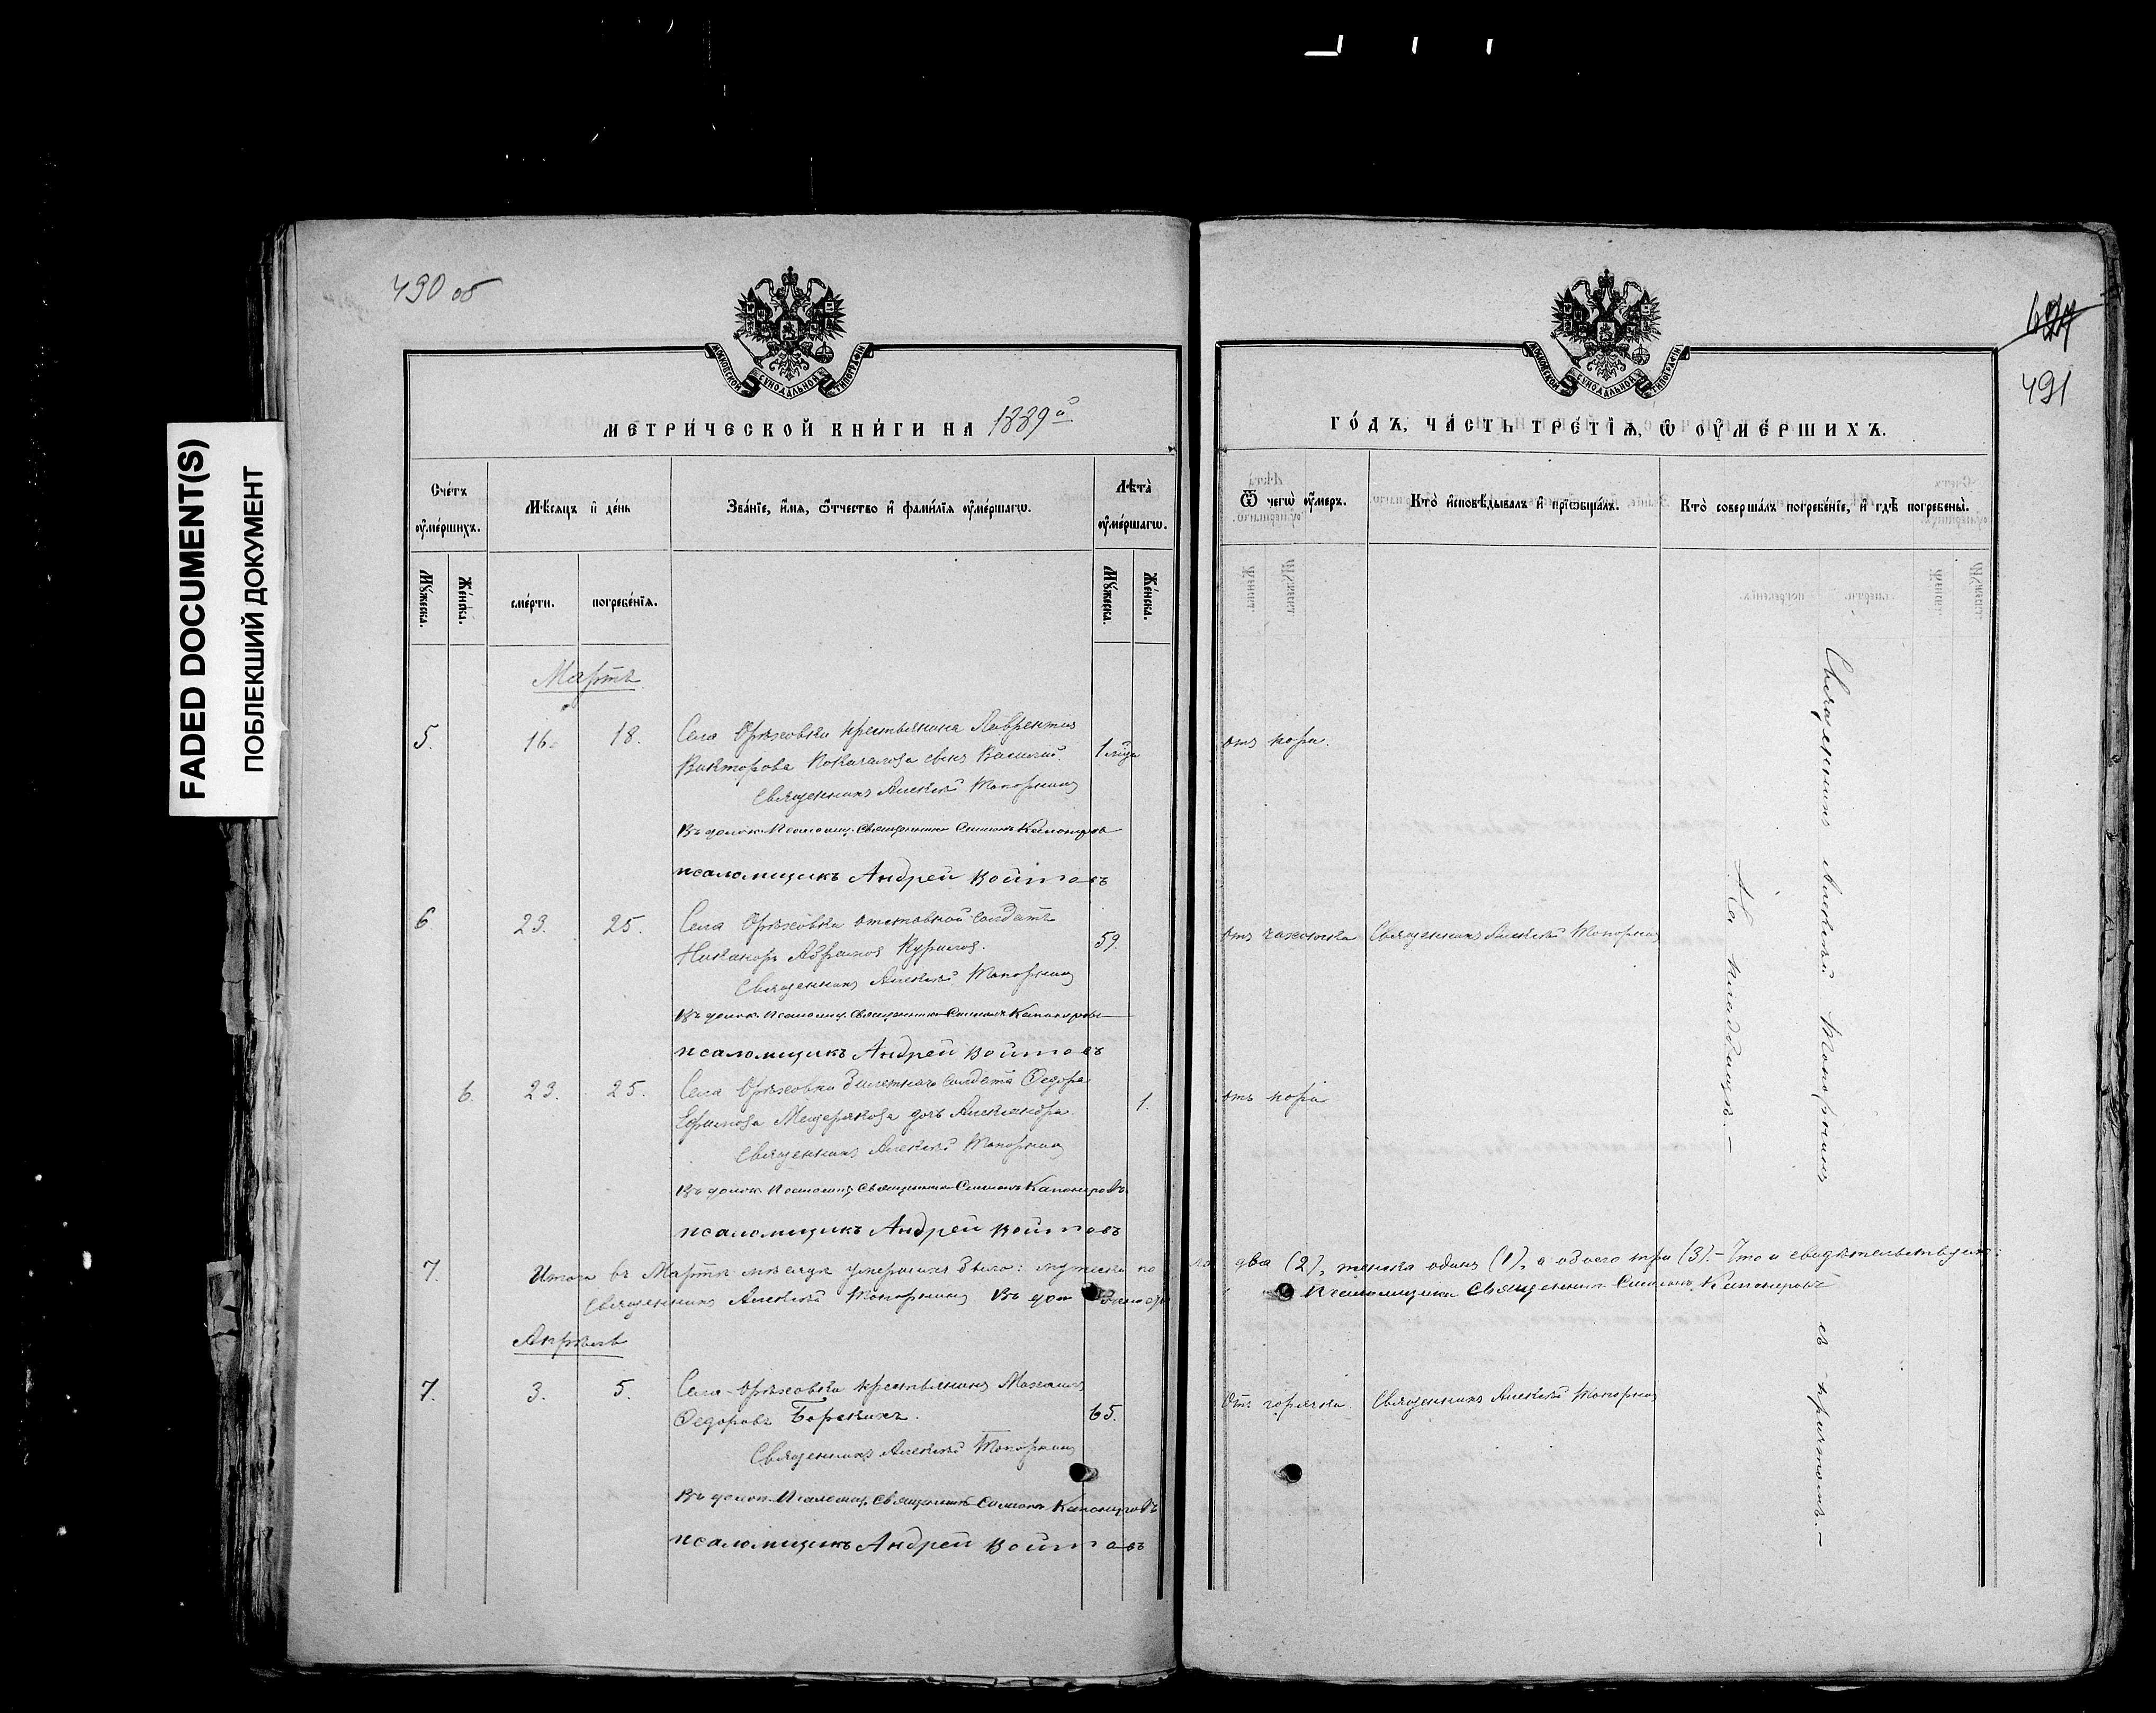 FADED DOCUMENT(S)
ПОБЛЕКШИЙ ДОКУМЕНТ
490 об
МОСКОВСКОЙ СУНОДАЛЬНОЙ ТИПОГРАФІИ
МЕТРИ́ЧЕСКОЙ КНИ́ГИ НА 1889й
Сче́тъ ᲂу҆ме́ршихъ.
Мѣ́сяцъ и҆ де́нь
Зва́нїе, и҆́мя, ѻ҆́тчество и҆ фами́лїя ᲂу҆ме́ршагѡ.
Лѣ́та ᲂу҆ме́ршагѡ.
Мꙋ́жеска. Же́нска. сме́рти. погребе́нїя. Мꙋ́жеска. Же́нска.
Мартъ
5. 16. 18. Села Орѣховки крестьянина Лаврентія
Викторова сынъ Василій. 1 м҃ца
Священникъ Алексѣй Топорнинъ
Въ долж. Псаломщ. Священникъ Симеонъ Капонировъ
псаломщикъ Андрей Войтовъ
6 23. 25. Села Орѣховки отставной солдатъ
Никаноръ Абрамовъ Куриловъ. 59.
Священникъ Алексѣй Топорнинъ
Въ долж. Псаломщ. Священникъ Симеонъ Капонировъ
псаломщикъ Андрей Войтовъ
6. 23. 25. Села Орѣховки билетнаго солдата Ѳедора
Ефимова Мещерякова дочь Александра. 1.
Священникъ Алексѣй Топорнинъ
Въ долж. Псаломщ. Священникъ Симеонъ Капонировъ
псаломщикъ Андрей Войтовъ
7. Итого въ Мартѣ мѣсяцѣ умершихъ было: мужеска по
Священникъ Алексѣй Топорнинъ Въ долж
Апрѣль
7. 3. 5. Села Орѣховки крестьянинъ Михаилъ
Ѳедоровъ Борскихъ. 65.
Священникъ Алексѣй Топорнинъ
Въ долж. Псаломщ. Священникъ Симеонъ Капонировъ
псаломщикъ Андрей Войтовъ
491
МОСКОВСКОЙ СУНОДАЛЬНОЙ ТИПОГРАФІИ
ГО́ДЪ, ЧА́СТЬ ТРЕ́ТІѦ, Ѡ ОУ҆МЕ́РШИХЪ.
Ѿ чегѡ̀ ᲂу҆́меръ.
Кто̀ и҆сповѣ́дывалъ и҆ прїѡбща́лъ.
Кто̀ соверша́лъ погребе́нїе, и҆ гдѣ̀ погребены̀.
отъ кори.
отъ чахотки Священникъ Алексѣй Топорнинъ
отъ кори
ла два (2), женска одинъ (1), а обоего три (3). Что и свидѣтельствуемъ:
Псаломщика Священникъ Симеонъ Капонировъ
Отъ горячки. Священникъ Алексѣй Топорнинъ
Священникъ Алексѣй Топорнинъ съ причтомъ.
На кладбищѣ.